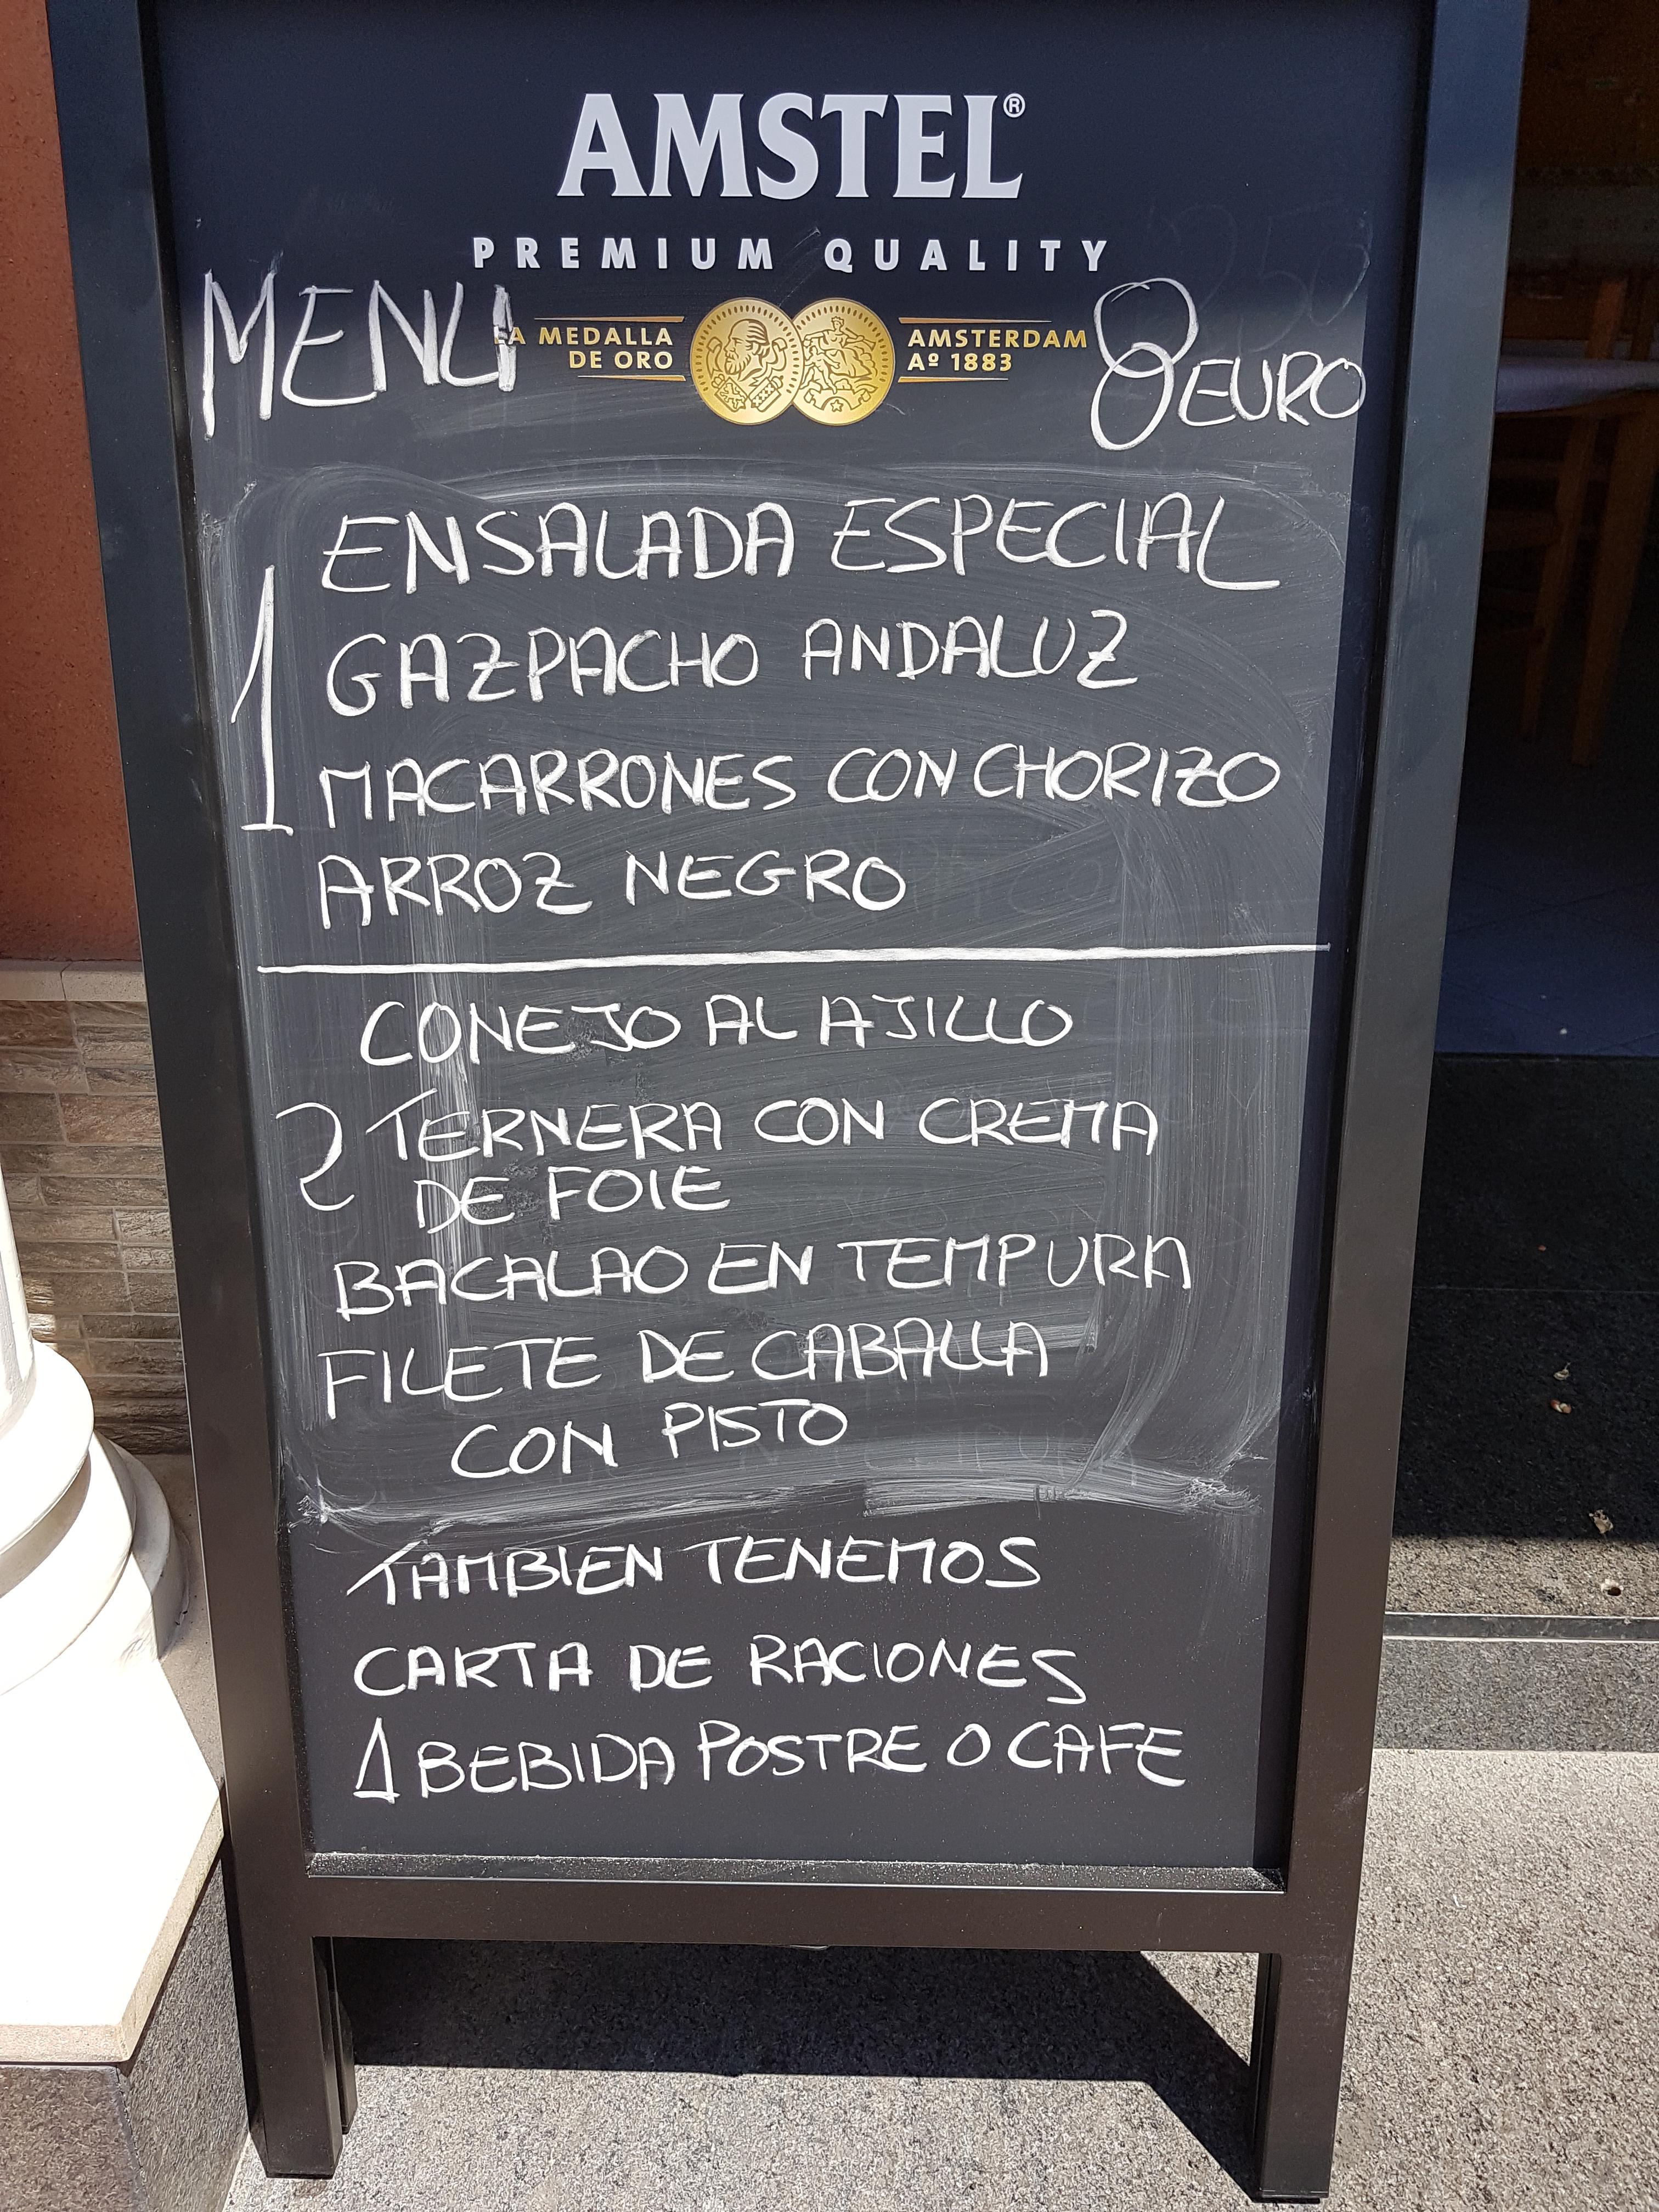 AMSTEL®
PREMIUM QUALITY
MENU
LA MEDALLA DE ORO
AMSTERDAM Aº 1883
8 EURO
ENSALADA ESPECIAL
1 GAZPACHO ANDALUZ
MACARRONES CON CHORIZO
ARROZ NEGRO
CONEJO AL AJILLO
2 TERNERA CON CREMA
DE FOIE
BACALAO EN TEMPURA
FILETE DE CABALLA
CON PISTO
TAMBIEN TENEMOS
CARTA DE RACIONES
1 BEBIDA POSTRE O CAFE